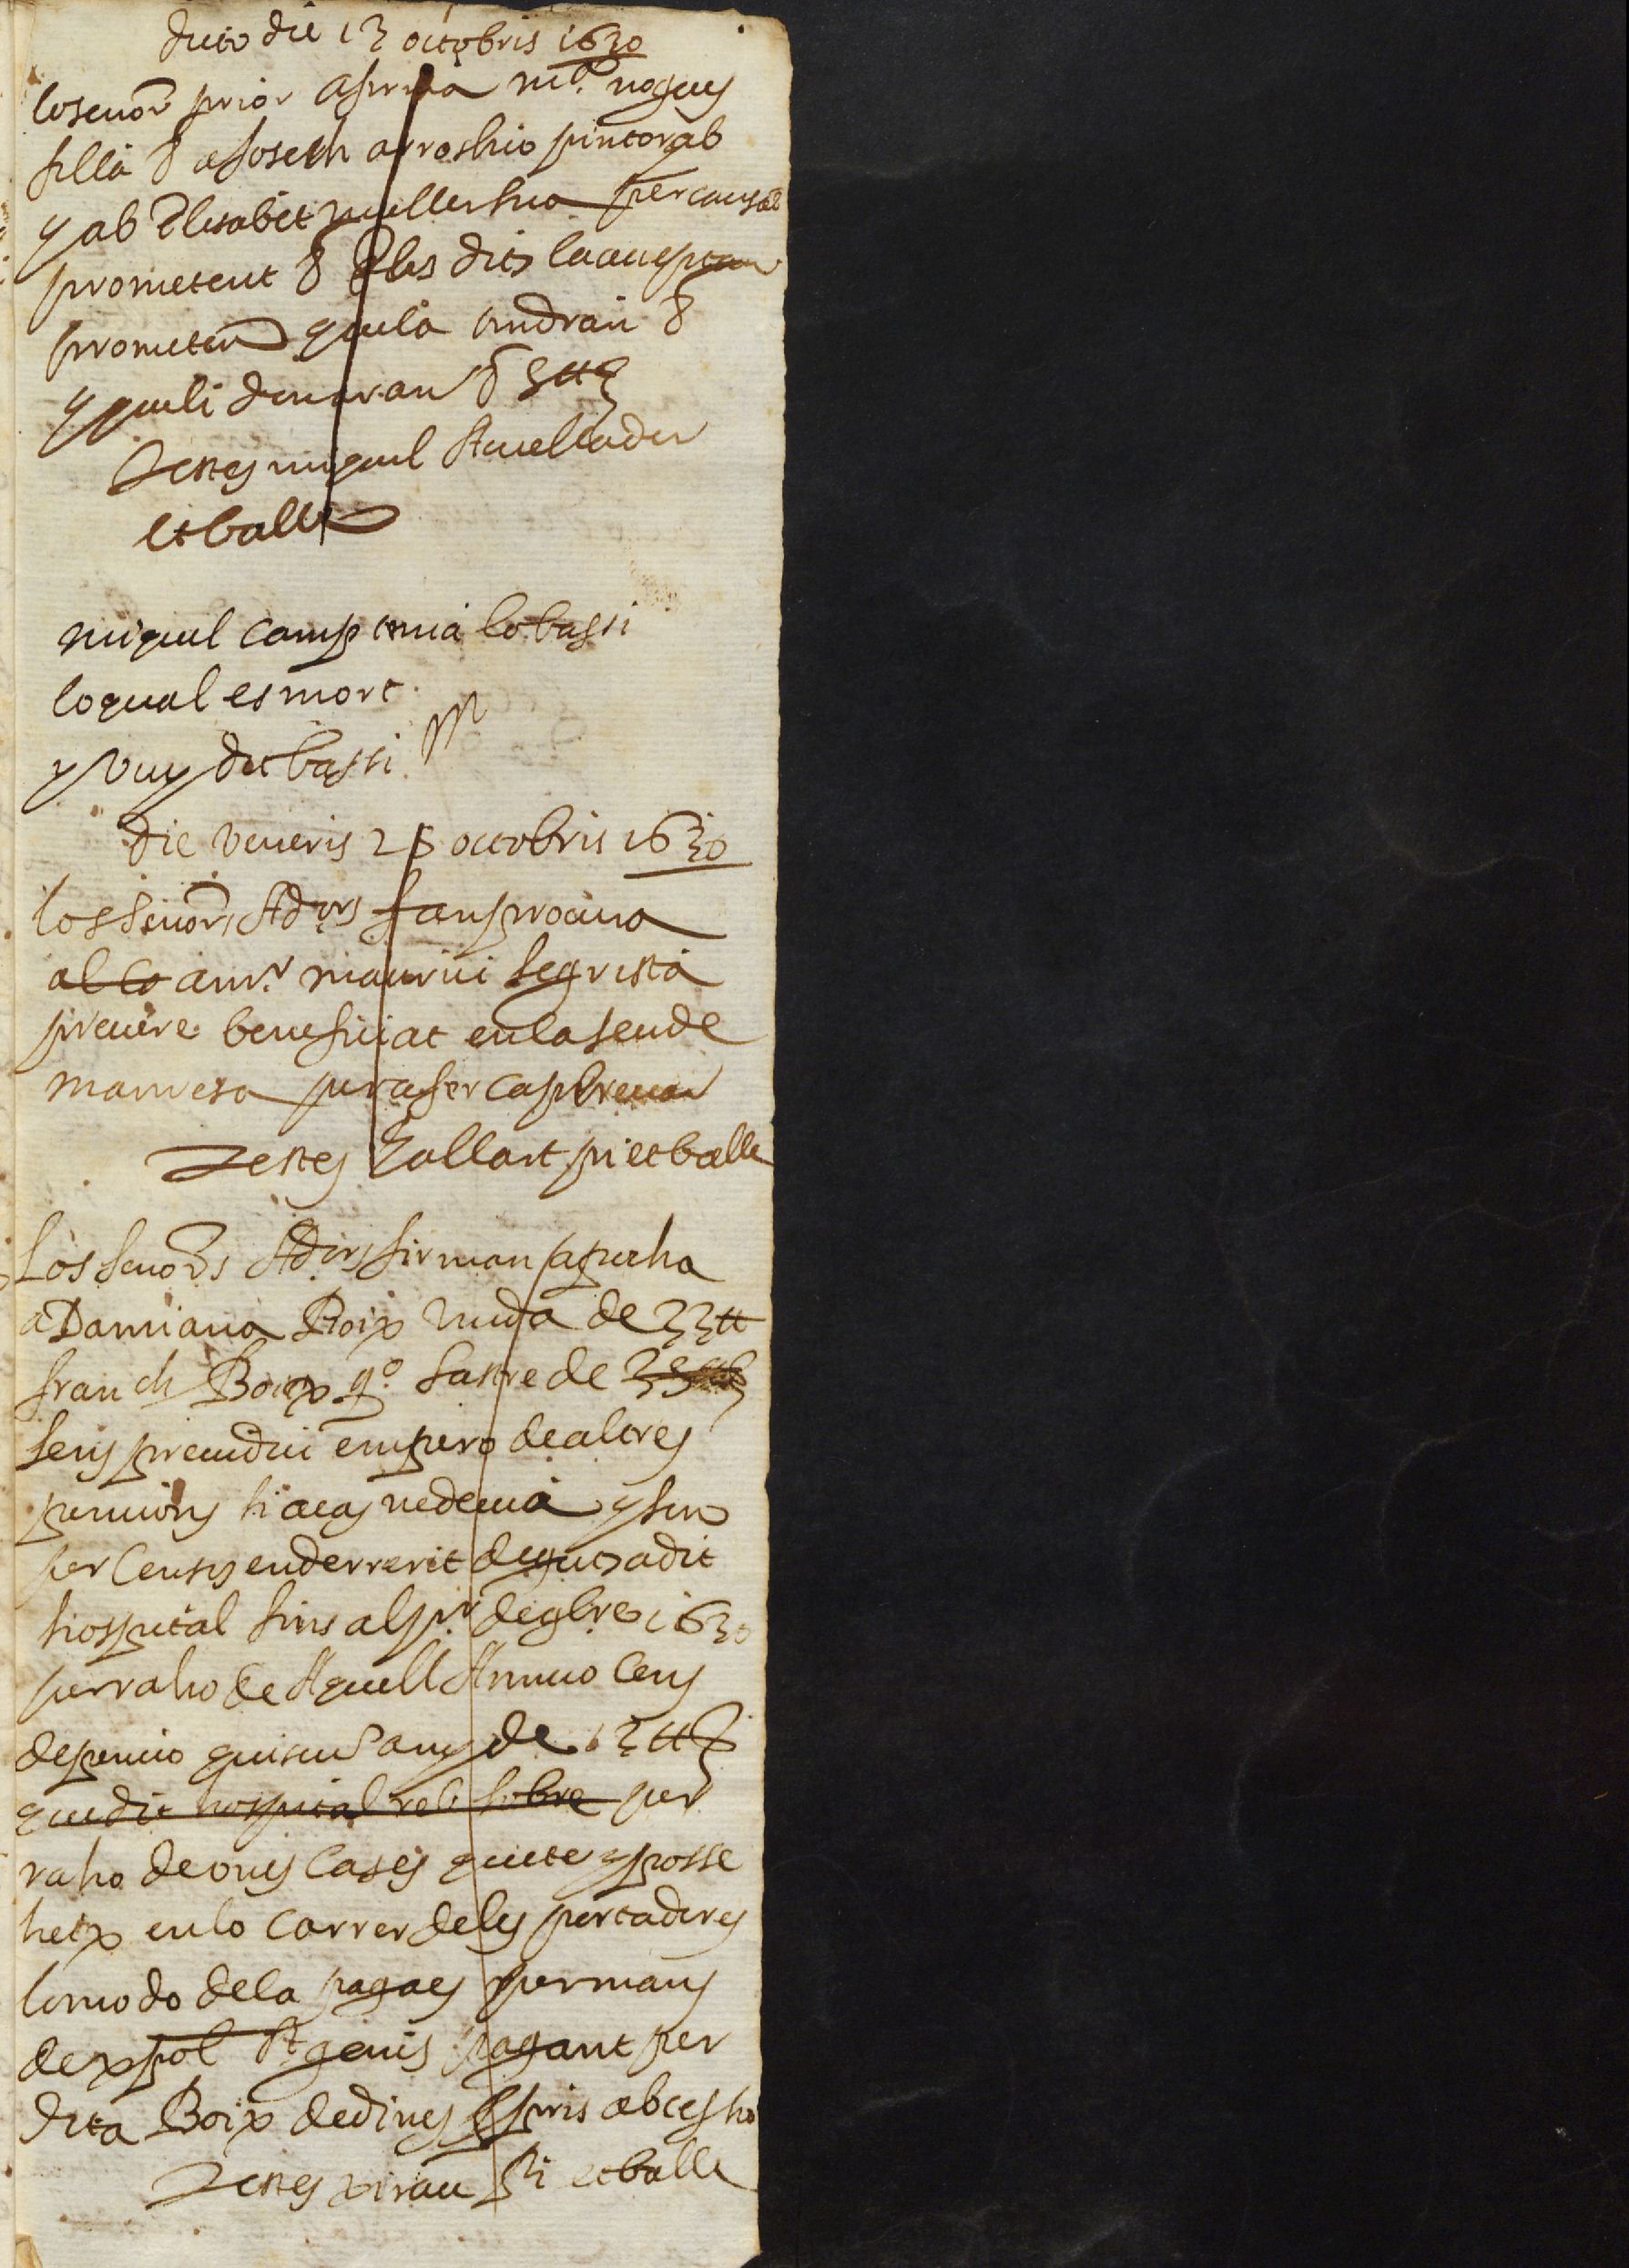 dicto die 13 octobris 1630
lo senor prior aferma m.ª nogues
filla & a Joseph arroshio pintor ab
y ab Elisabet muller sua per causa
prometent & Els dits la accepten
prometen que la tindran &
y que li donaran &
Testes miquel Amellader
et balle
miquel camp tenia lo bassi
lo qual es mort
y vuy dit bassi
die veneris 25 octobris 1630
los senors Adors fan procura
al Sr maurici segrista
prevere beneficiat en la seu de
manresa per a fer capbrevar
Testes Gallart pi et balle
Los senors Adors firman apocha
a Damiana Boix viuda de 33 tt
franch Boix qº sastre de
sens prejudici empero de altres
pencions si acas ne devia y son
per censos enderrerit deguts a dit
hospital fins al pr de 9bre 1630
per raho de Aquell Annuo cens
de pencio quiscun any de 13 tt
que dit hospital reb sobre per
raho de unes cases que te y posse
heix en lo carrer de les portaderes
lo modo de la paga es per mans
de xpol St genis pagant per
dita Boix de diners propris ab cessio
Testes pirau pi et balle